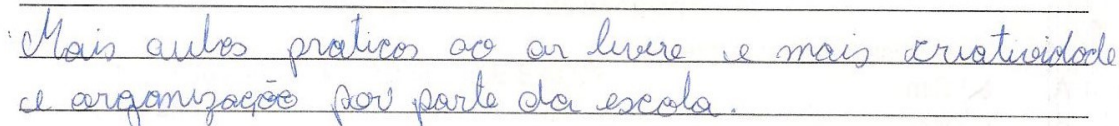 Mais aulas praticas ao ar livre e mais criatividade
e organização por parte da escola.